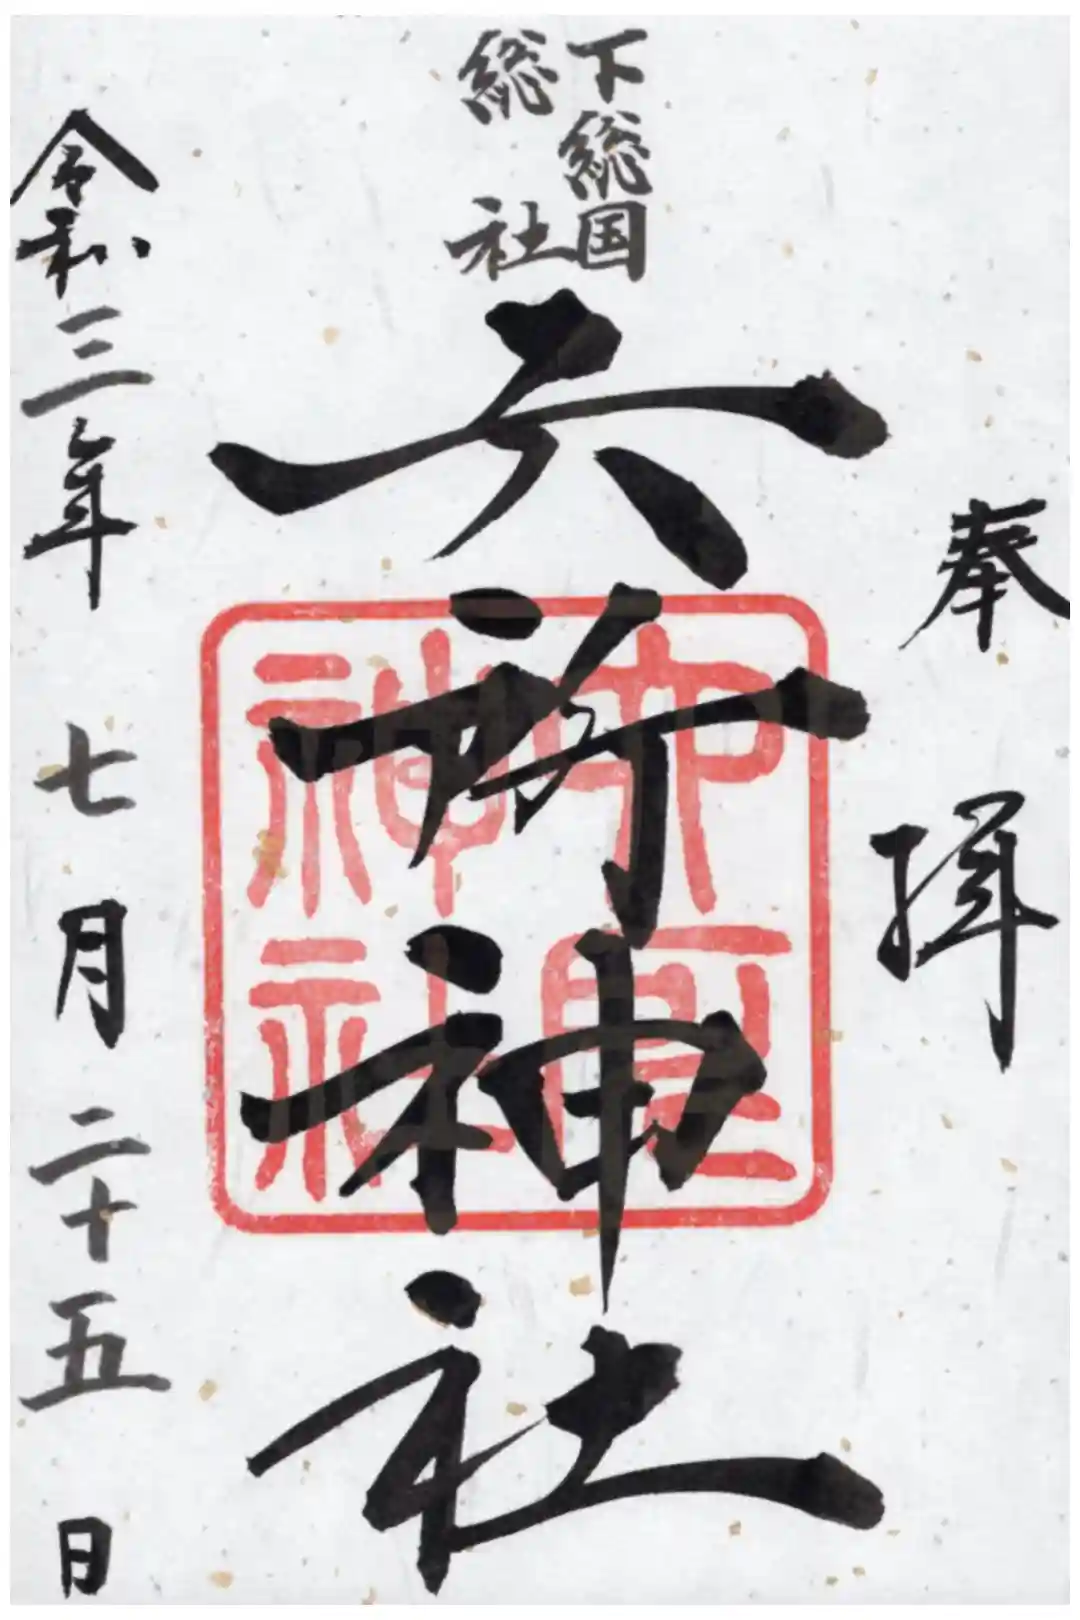 奉拝
下総国
総社
六所神社
六所
神社
令和三年七月二十五日